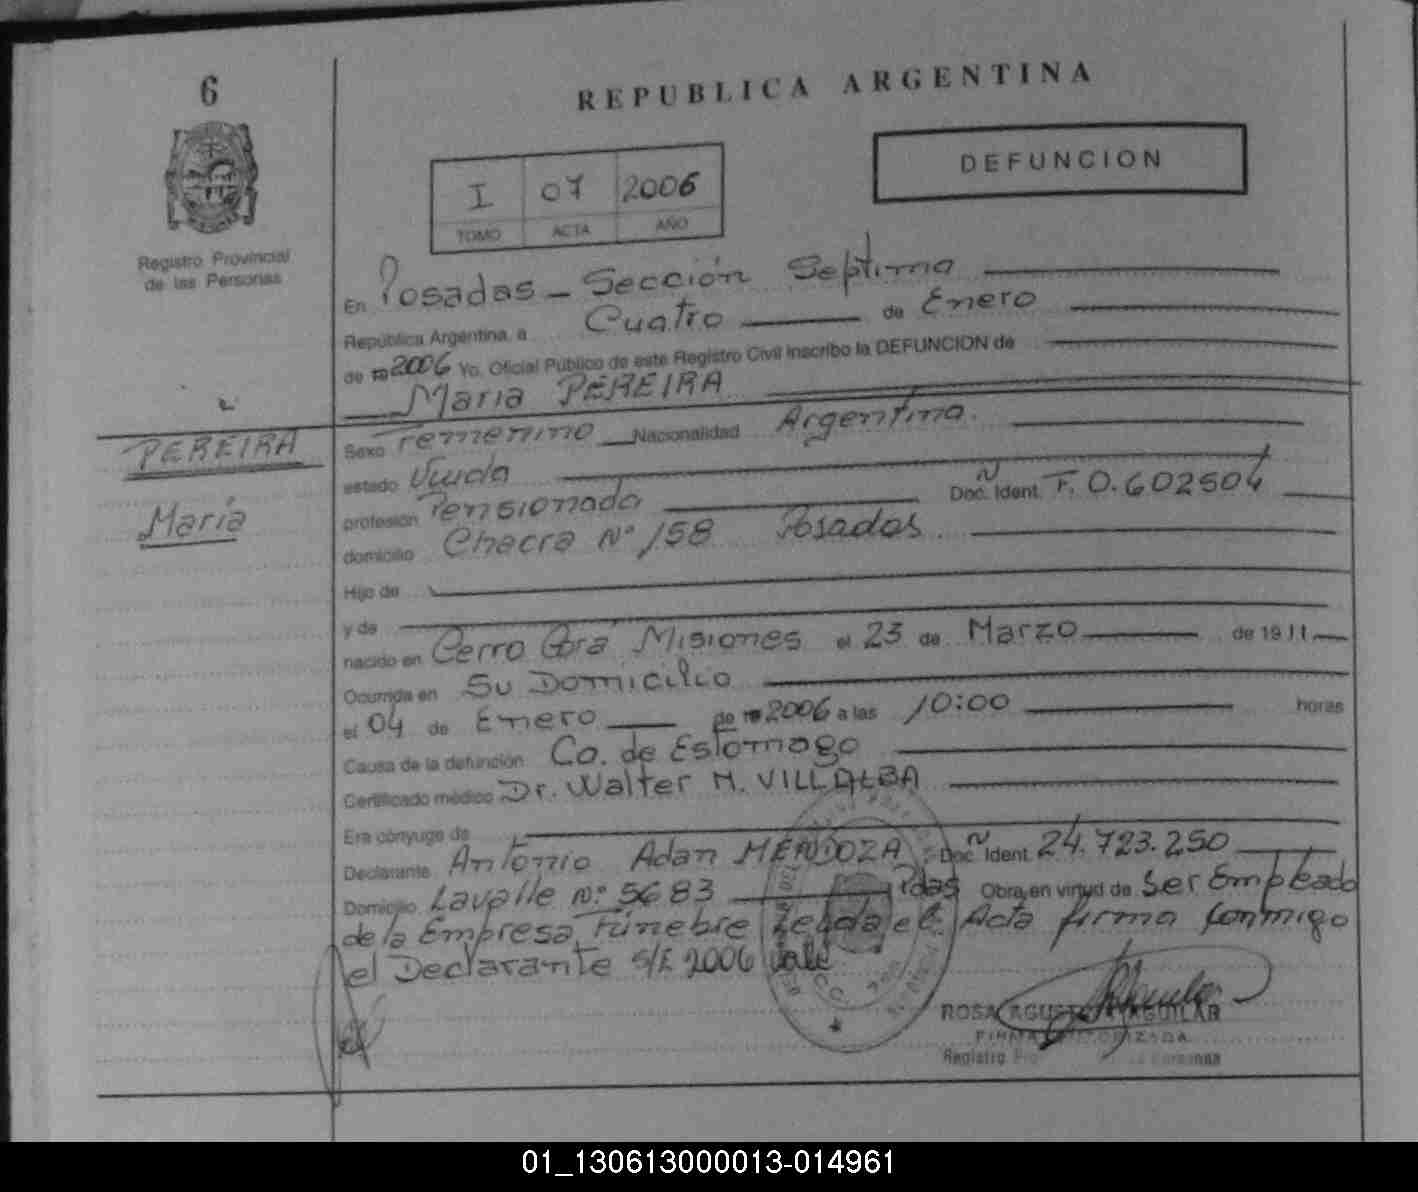 6
REPUBLICA ARGENTINA
DEFUNCION
I 07 2006
TOMO ACTA AÑO
Registro Provincial
de las Personas
En Posadas - Sección Septima
República Argentina, a Cuatro de Enero
de 19 2006 Yo, Oficial Público de este Registro Civil inscribo la DEFUNCION de
Maria PEREIRA
PEREIRA
Maria
Sexo Femenino Nacionalidad Argentina.
estado Viuda
profesión Pensionada Doc. Ident. F. 0.602504
domicilio Chacra Nº 158 Posadas
Hijo de
y de
nacido en Cerro Corá Misiones el 23 de Marzo de 1911
Ocurrida en Su Domicilio
el 04 de Enero de 19 2006 a las 10:00 horas
Causa de la defunción Ca. de Estomago
Certificado médico Dr. Walter H. VILLALBA
Era cónyuge de
Declarante Antonio Adan MENDOZA Doc. Ident. 24.723.250
Domicilio Lavalle Nº 5683 Pdas Obra en virtud de Ser Empleado
de la Empresa Fúnebre el Acta firma Conmigo
el Declarante S/E 2006 Vale
ROSA AGUILAR
Registro Personas
01_130613000013-014961